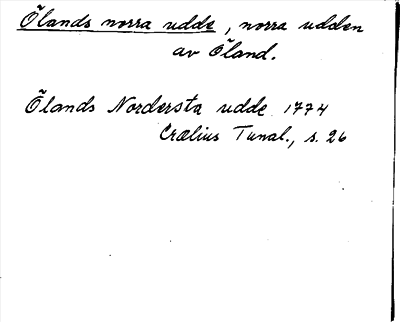 Ölands norra udde, norra udden
av Öland.
Ölands Nordersta udde 1774
Crælius Tunal., s. 26